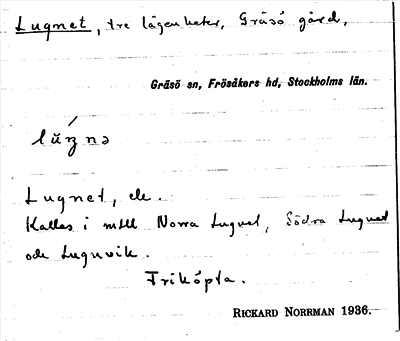 Lugnet, tre lägenheter, Gräsö gård,
Gräsö sn, Frösåkers hd, Stockholms län.
Lugnet, ele.
Kallas i mtll Norra Lugnet, Södra Lugnet
och Lugnvik.
Friköpta.
RICKARD NORRMAN 1936.